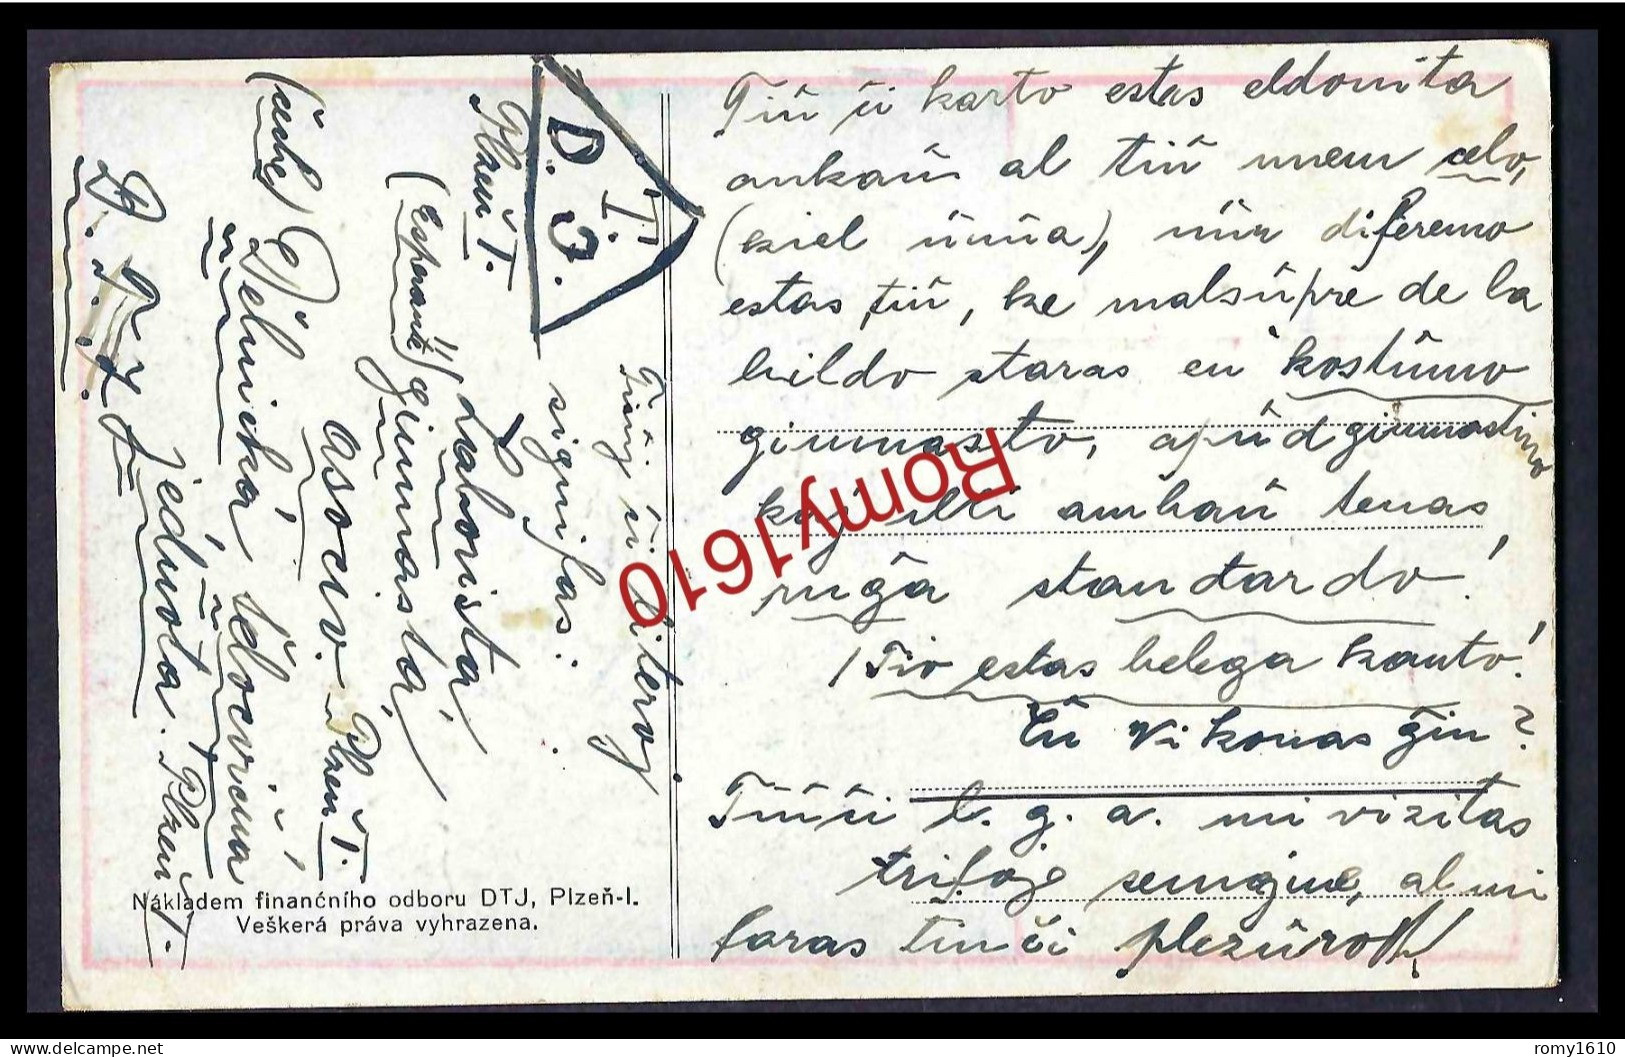 Tiu ĉi karto estas eldonita
ankaŭ al tiu unem celo,
(kiel unua), nur diferemo
estas tiu, ke malsupre de la
bildo staras en kostumo
gimnasto, apud gimnastino
kaj illi ambaŭ tenas
ruĝa standardo!
/Tio estas belega kanto!
Ĉu Vi konas ĝin?
Tiuĉi l. g. a. mi vizitas
trifoje semajne, al mi
faras tion ĉi plezuro!!!
D. T. J.
Plzeň I.
Tiuj ĉi literoj
signifas:
(Esperante) Laborista
gimnasta
asocio. Plzeň I.
(ĉeĥe) Dělnická tělocvična
jednota. Plzeň I.
D. T. J.
Nákladem finančního odboru DTJ, Plzeň-I.
Veškerá práva vyhrazena.
Romy1610
www.delcampe.net
romy1610